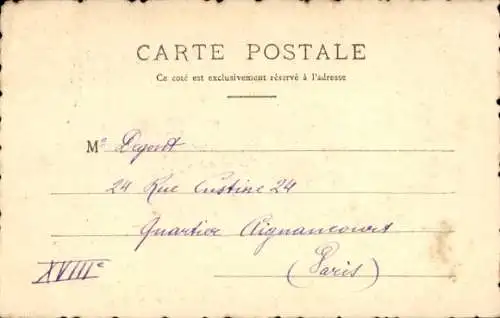 CARTE POSTALE
Ce coté est exclusivement réservé à l'adresse
Me
24 Rue Custine 24
Quartier Clignancourt
XVIIIe
(Paris)